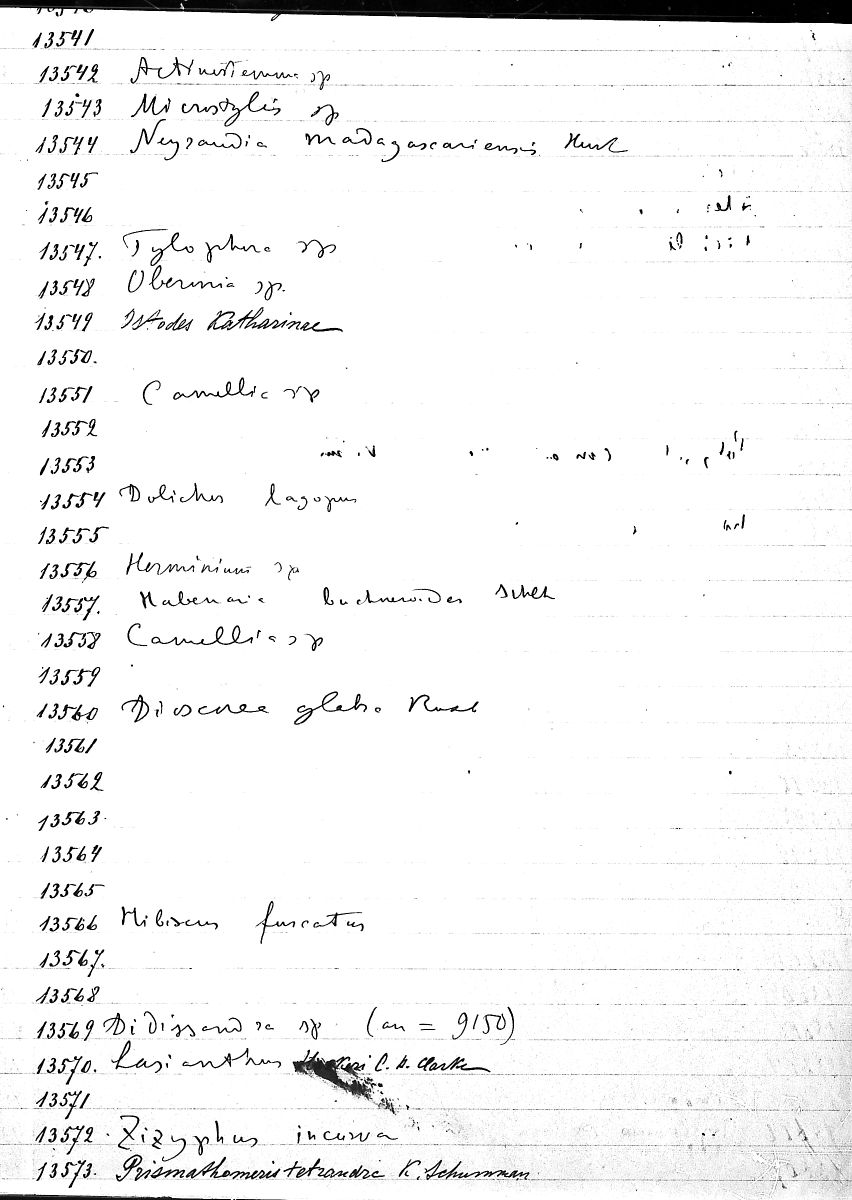 13541
13542 Actinostemma sp
13543 Microstylis sp
13544 Neyraudia madagascariensis Hook
13545
13546
13547. Tylophora sp
13548 Oberonia sp.
13549 Istodes Katharinae
13550.
13551 Camellia sp
13552
13553
13554 Dolichos lagopus
13555
13556 Herminium sp
13557. Habenaria buchneroides Schltr
13558 Camellia sp
13559
13560 Dioscorea glabra Roxb
13561
13562
13563
13564
13565
13566 Hibiscus fuscatus
13567.
13568
13569 Didissandra sp. (an = 9150)
13570. Lasianthus C. B. Clarke
13571
13572. Zizyphus incurva
13573. Prismathomeris tetrandra K. Schumman